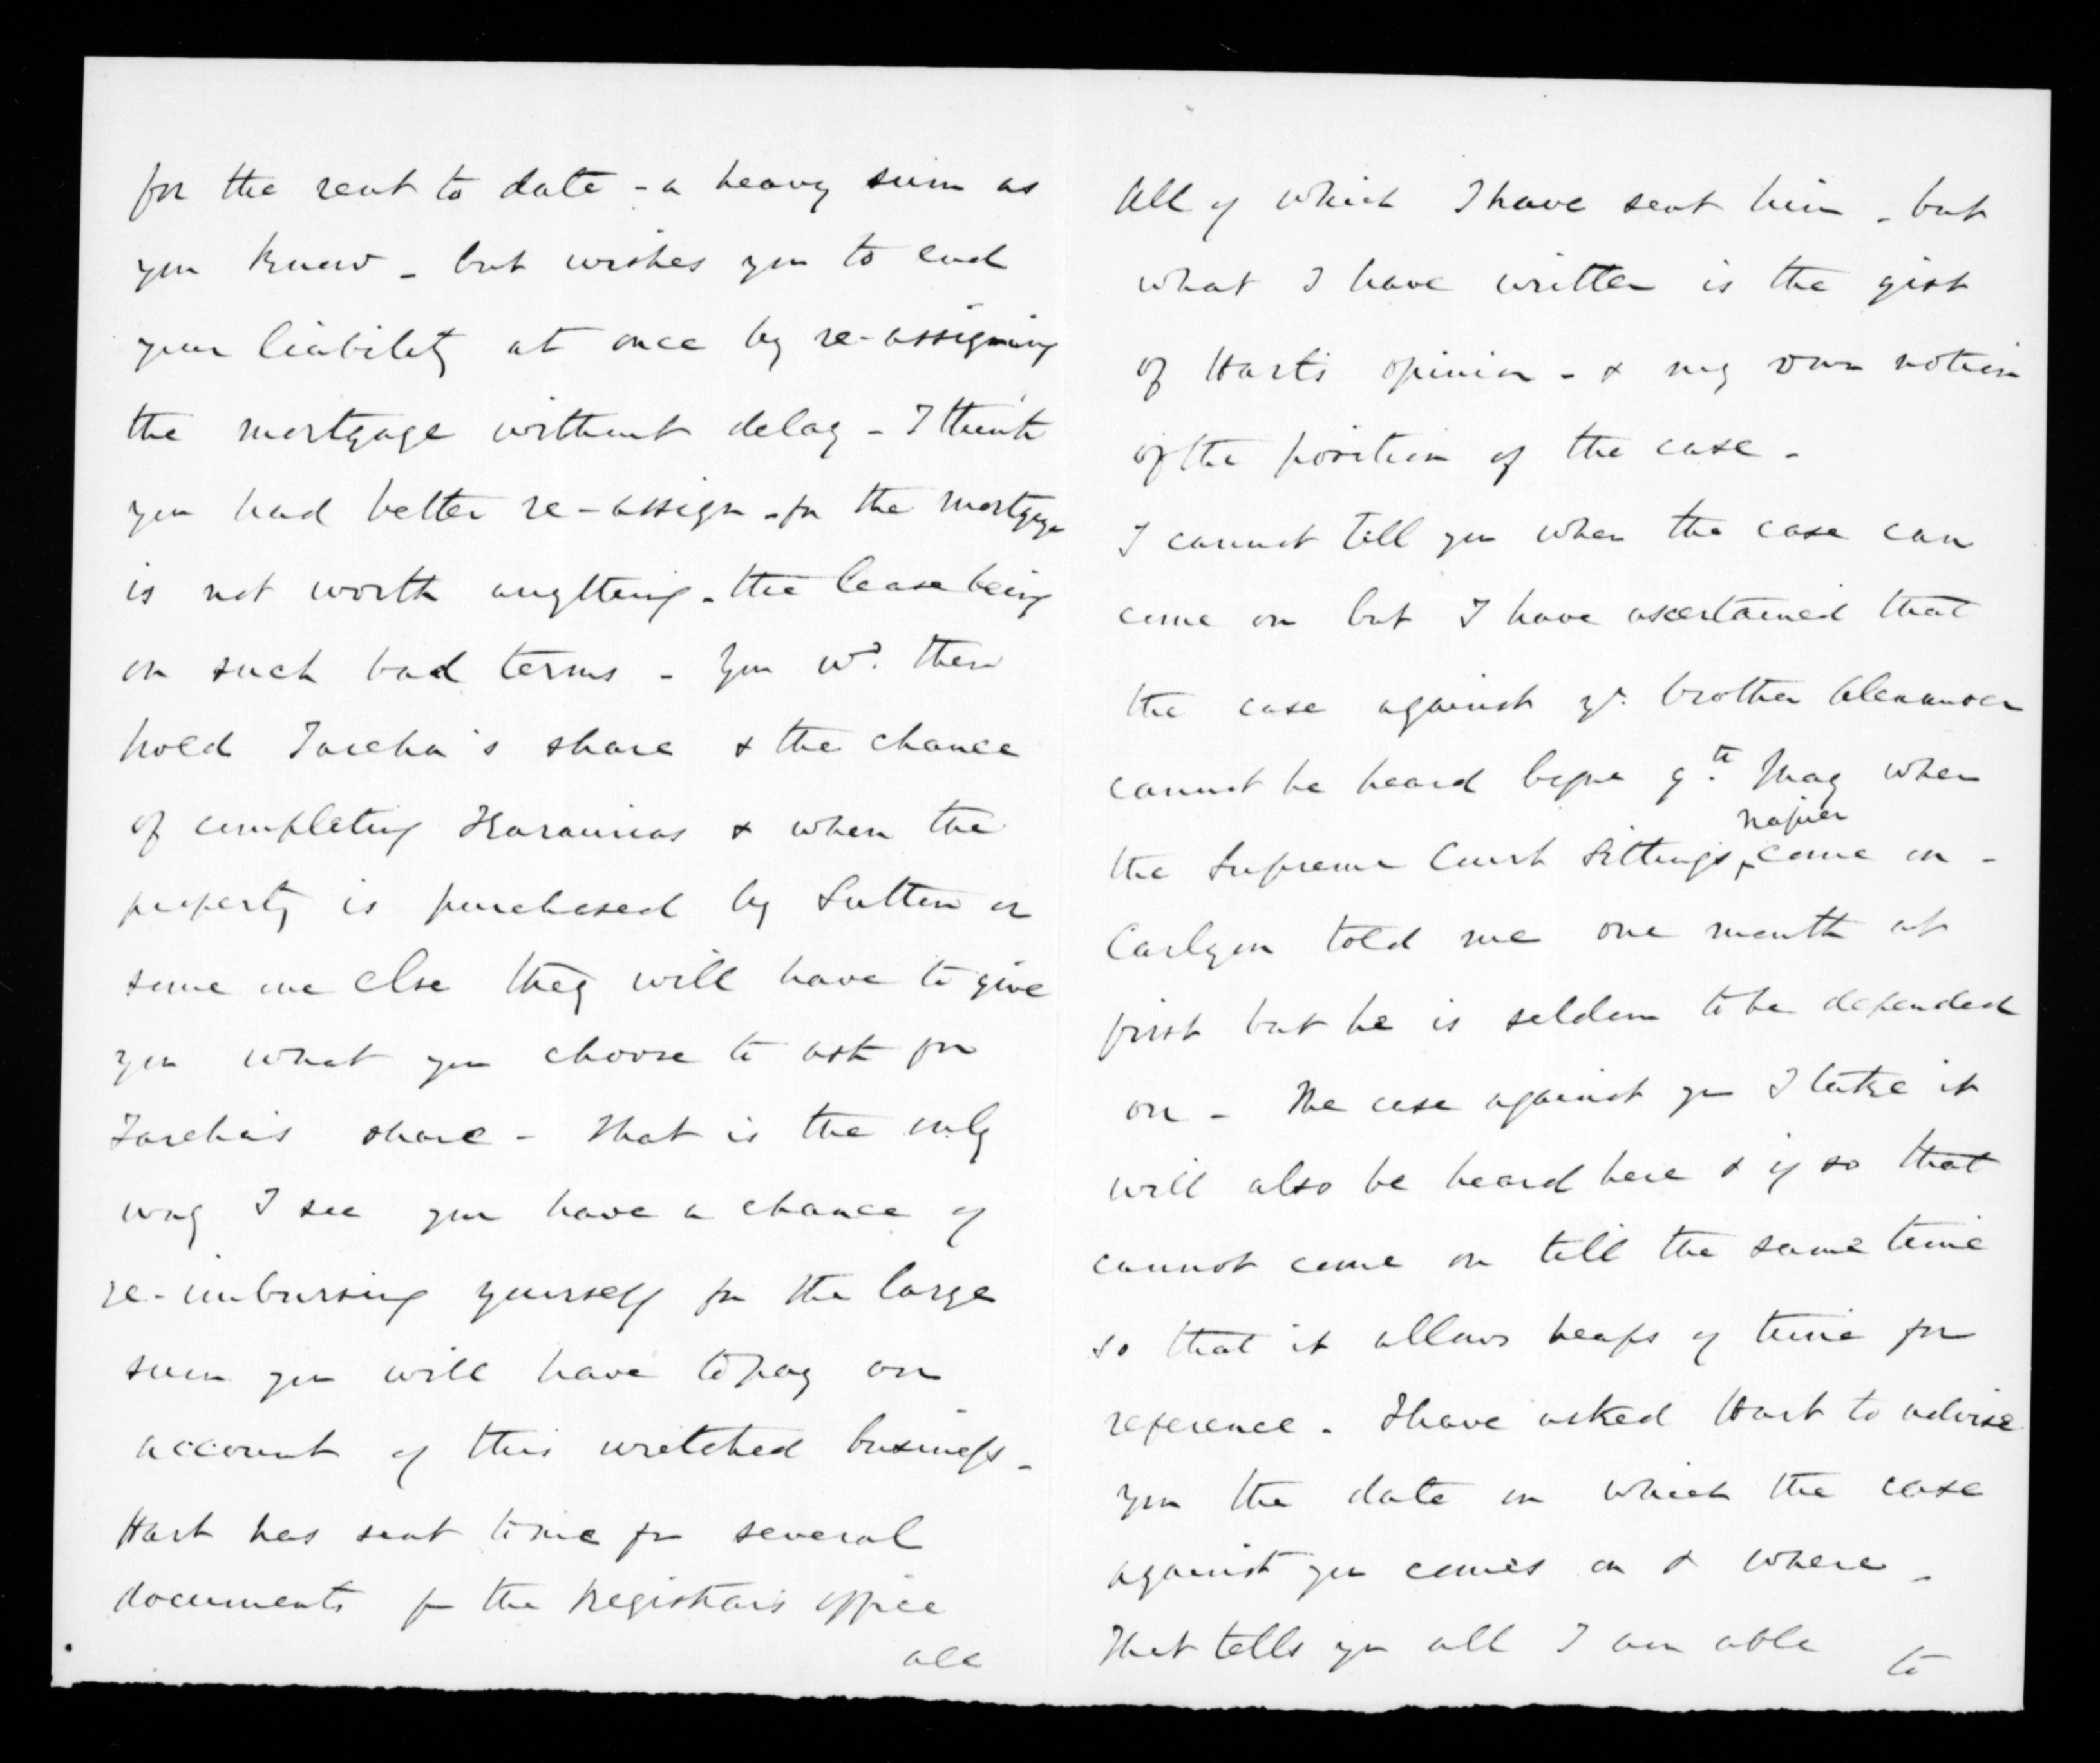 for the rent to date - a heavy sum as
you know - but wishes you to end
your liability at once by re-assigning
the mortgage without delay - I think
you had better re-assign - for the mortgage
is not worth anything - the lease being
on such bad terms - You wd. then
hold Tareha's share & the chance
of completing Karauria's & when the
property is purchased by Sutton or
some one else they will have to give
you what you choose to ask for
Tareha's share - That is the only
way I see you have a chance of
re-imbursing yourself for the large
sum you will have to pay on
account of this wretched business -
Hart has sent to me for several
documents fm the Registrar's office
all
All of which I have sent him - but
what I have written is the gist
of Hart's opinion - & my own notion
of the position of the case -
I cannot tell you when the case can
come on but I have ascertained that
the case against yr. brother Alexander
cannot be heard before 9th. May when
the Supreme Court Sittings, Napier come on -
Carlyon told me one month at
first but he is seldom to be depended
on - The case against you I take it
will also be heard here & if so that
cannot come on till the same time
so that it allows heaps of time for
reference - I have asked Hart to advise
you the date on which the case
against you comes on & where -
That tells you all I am able
to